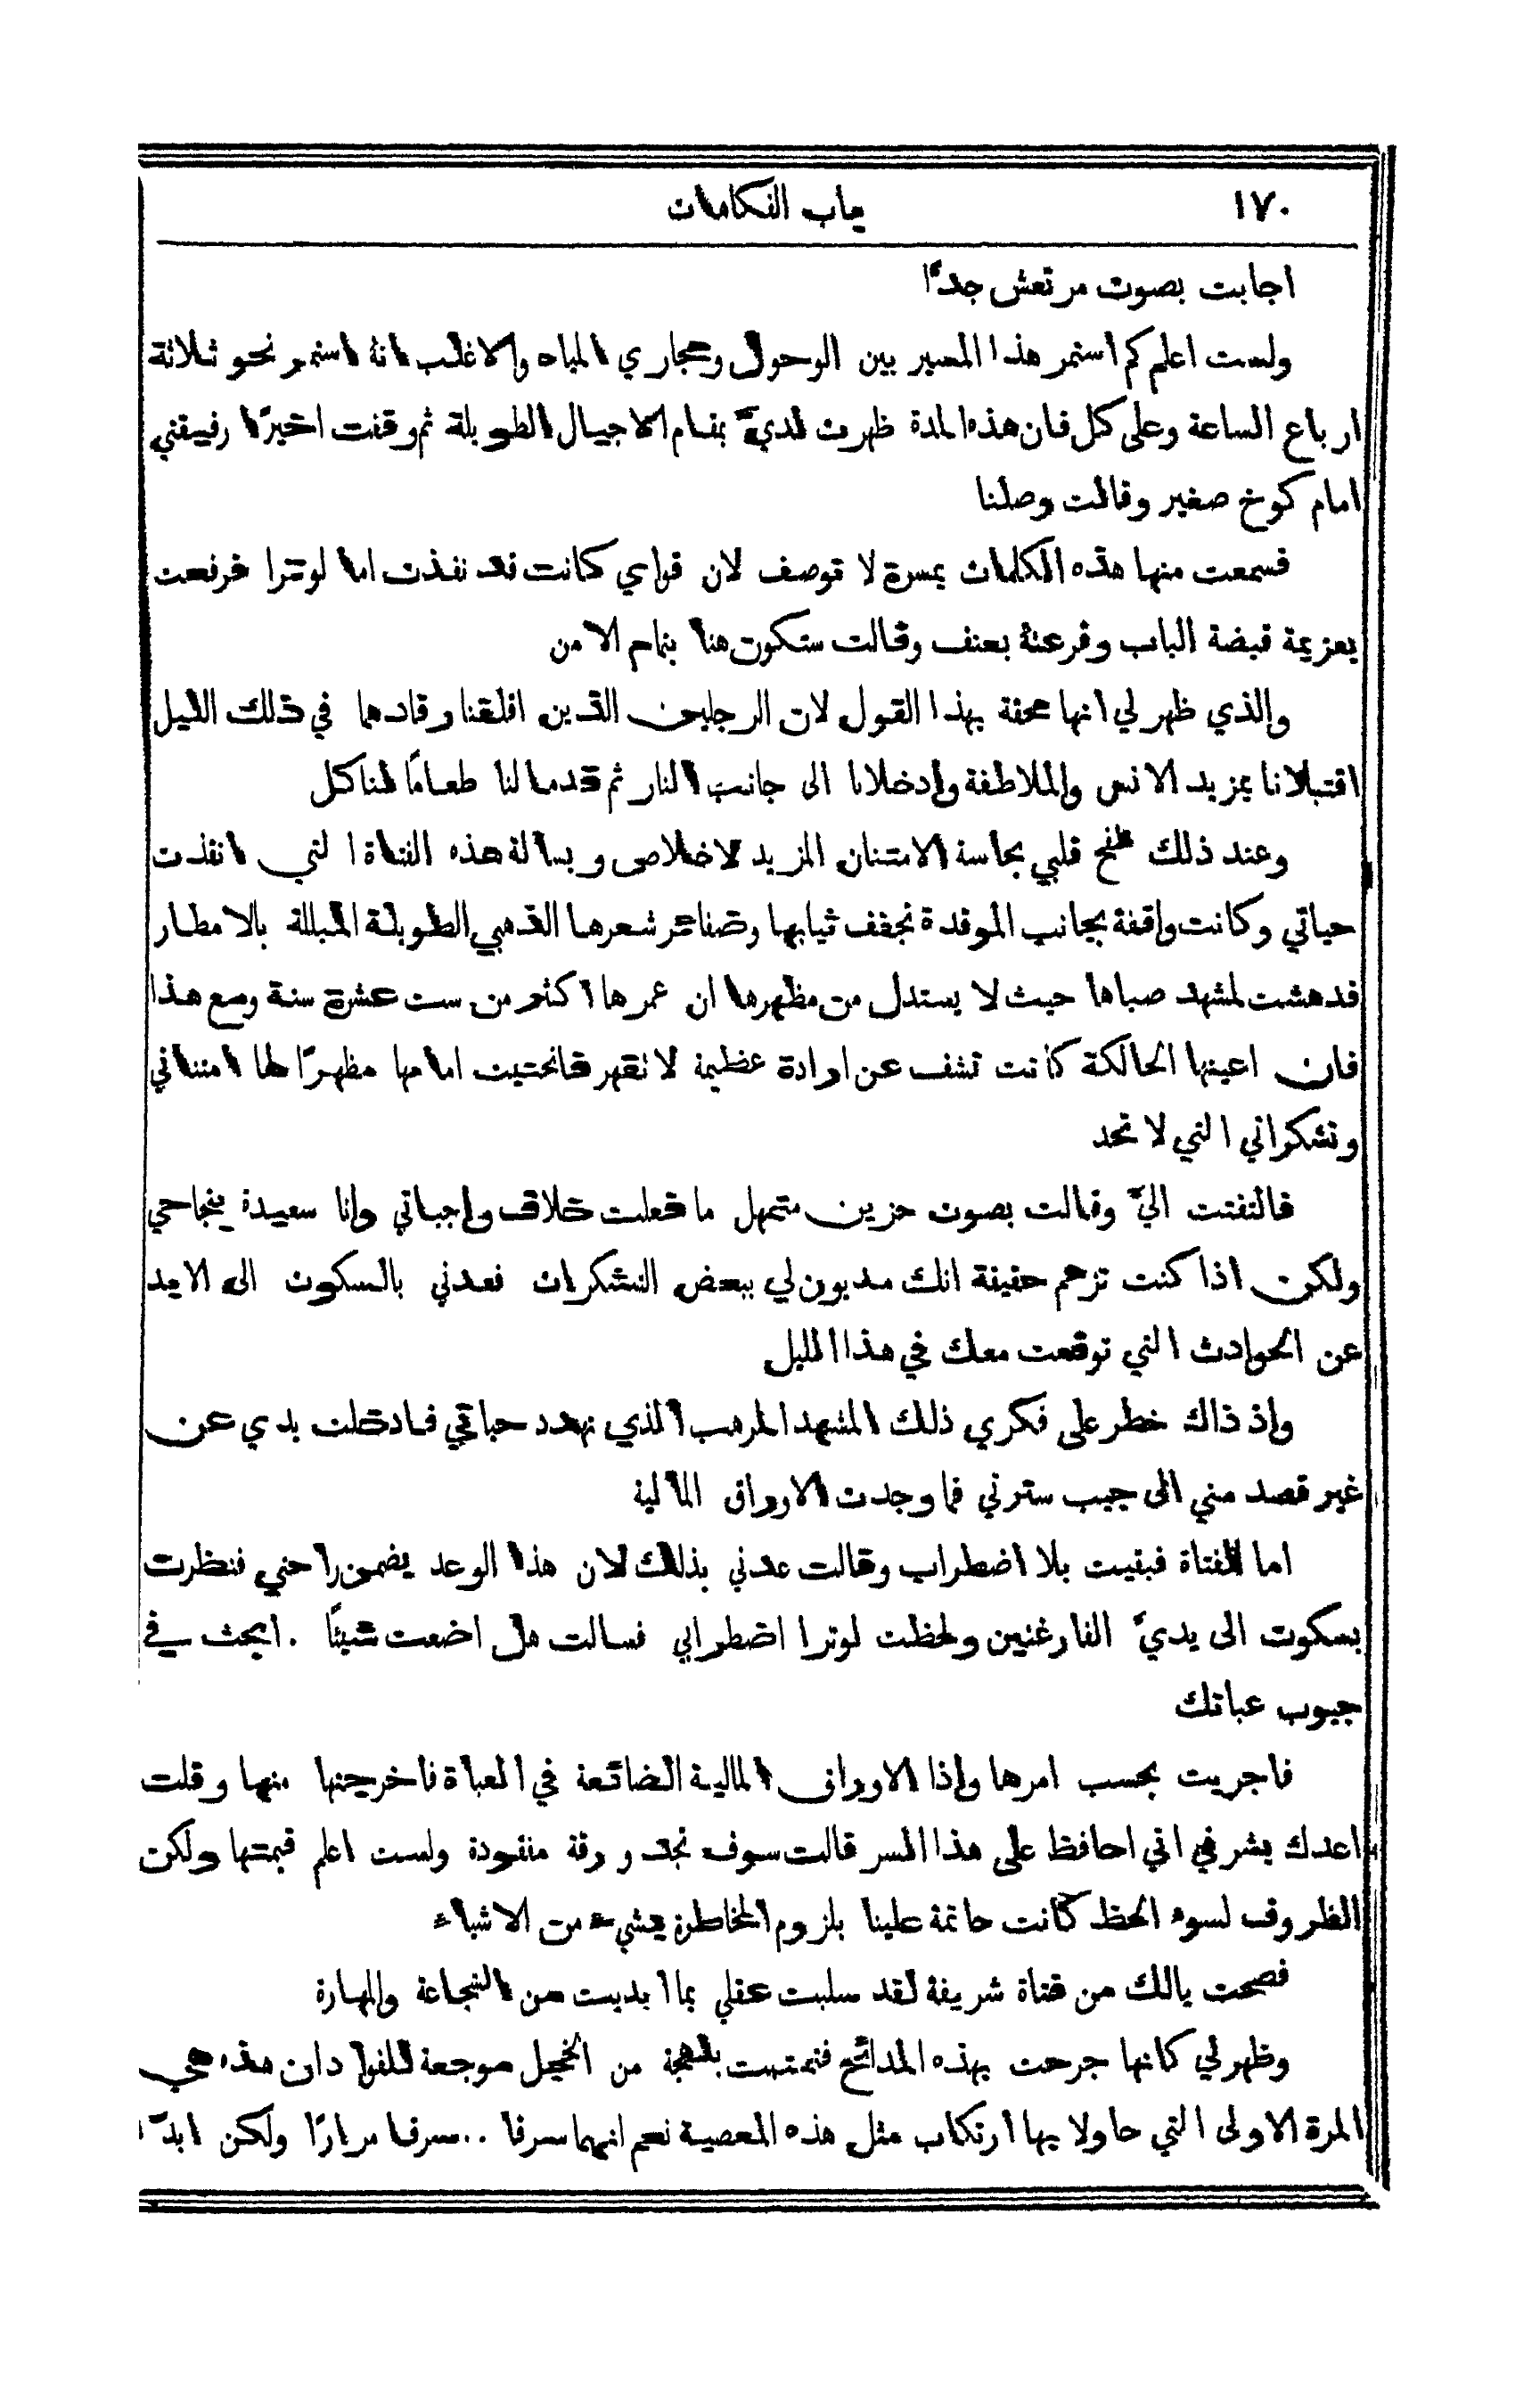 ١٧٠ باب الفكاهات
اجابت بصوت مرتعش جدًّا
ولست اعلم كم استمر هذا المسير بين الوحول ومجاري المياه والاغلب انهُ استمر نحو ثلاثة
ارباع الساعة وعلى كل فان هذه المدة ظهرت لديَّ بمقام الاجيال الطويلة ثم وقفت اخيرًا رفيقتي
امام كوخ صغير وقالت وصلنا
فسمعت منها هذه الكلمات بمسرة لا توصف لان قواي كانت قد نفذت اما لوترا فرفعت
بعزيمة قبضة الباب وقرعتهُ بعنف وقالت ستكون هنا بتمام الامن
والذي ظهر لي انها محقة بهذا القول لان الرجلين الذين اقلقنا رقادهما في ذلك الليل
اقتبلانا بمزيد الانس والملاطفة وادخلانا الى جانب النار ثم قدما لنا طعامًا لناكل
وعند ذلك طفح قلبي بحاسة الامتنان المزيد لاخلاص وبسالة هذه الفتاة التي انقذت
حياتي وكانت واقفة بجانب الموقدة تجفف ثيابها وضفائر شعرها الذهبي الطويلة المبللة بالامطار
فدهشت لمشهد صباها حيث لا يستدل من مظهرها ان عمرها اكثر من ست عشرة سنة ومع هذا
فان اعينها الحالكة كانت تشف عن ارادة عظيمة لا تقهر فانحنيت امامها مظهرًا لها امتناني
وتشكراتي التي لا تحد
فالتفتت اليَّ وقالت بصوت حزين متمهل ما فعلت خلاف واجباتي وانا سعيدة بنجاحي
ولكن اذا كنت تزعم حقيقة انك مديون لي ببعض التشكرات فعدني بالسكوت الى الابد
عن الحوادث التي توقعت معك في هذا الليل
واذ ذاك خطر على فكري ذلك المشهد المرهب الذي تهدد حياتي فادخلت يدي عن
غير قصد مني الى جيب سترتي فما وجدت الاوراق المالية
اما الفتاة فبقيت بلا اضطراب وقالت عدني بذلك لان هذا الوعد يضمن راحتي فنظرت
بسكوت الى يديَّ الفارغتين ولحظت لوترا اضطرابي فسالت هل اضعت شيئًا . ابحث في
جيوب عباتك
فاجريت بحسب امرها واذا الاوراق المالية الضائعة في العباة فاخرجتها منها وقلت
اعدك بشرفي اني احافظ على هذا السر قالت سوف تجد ورقة منقودة ولست اعلم قيمتها ولكن
الظروف لسوء الحظ كانت حاتمة علينا بلزوم المخاطرة بشيء من الاشياء
فصحت يالك من فتاة شريفة لقد سلبت عقلي بما ابديت من الشجاعة والمهارة
وظهر لي كانها جرحت بهذه المدائح فتمتمت بلهجة من الخجل موجعة للفواد ان هذه هي
المرة الاولى التي حاولا بها ارتكاب مثل هذه المعصية نعم انهما سرقا .. سرقا مرارًا ولكن ابدًا